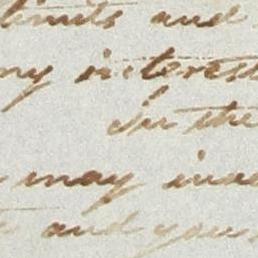 limits and
my interest
In the
may inve
and your